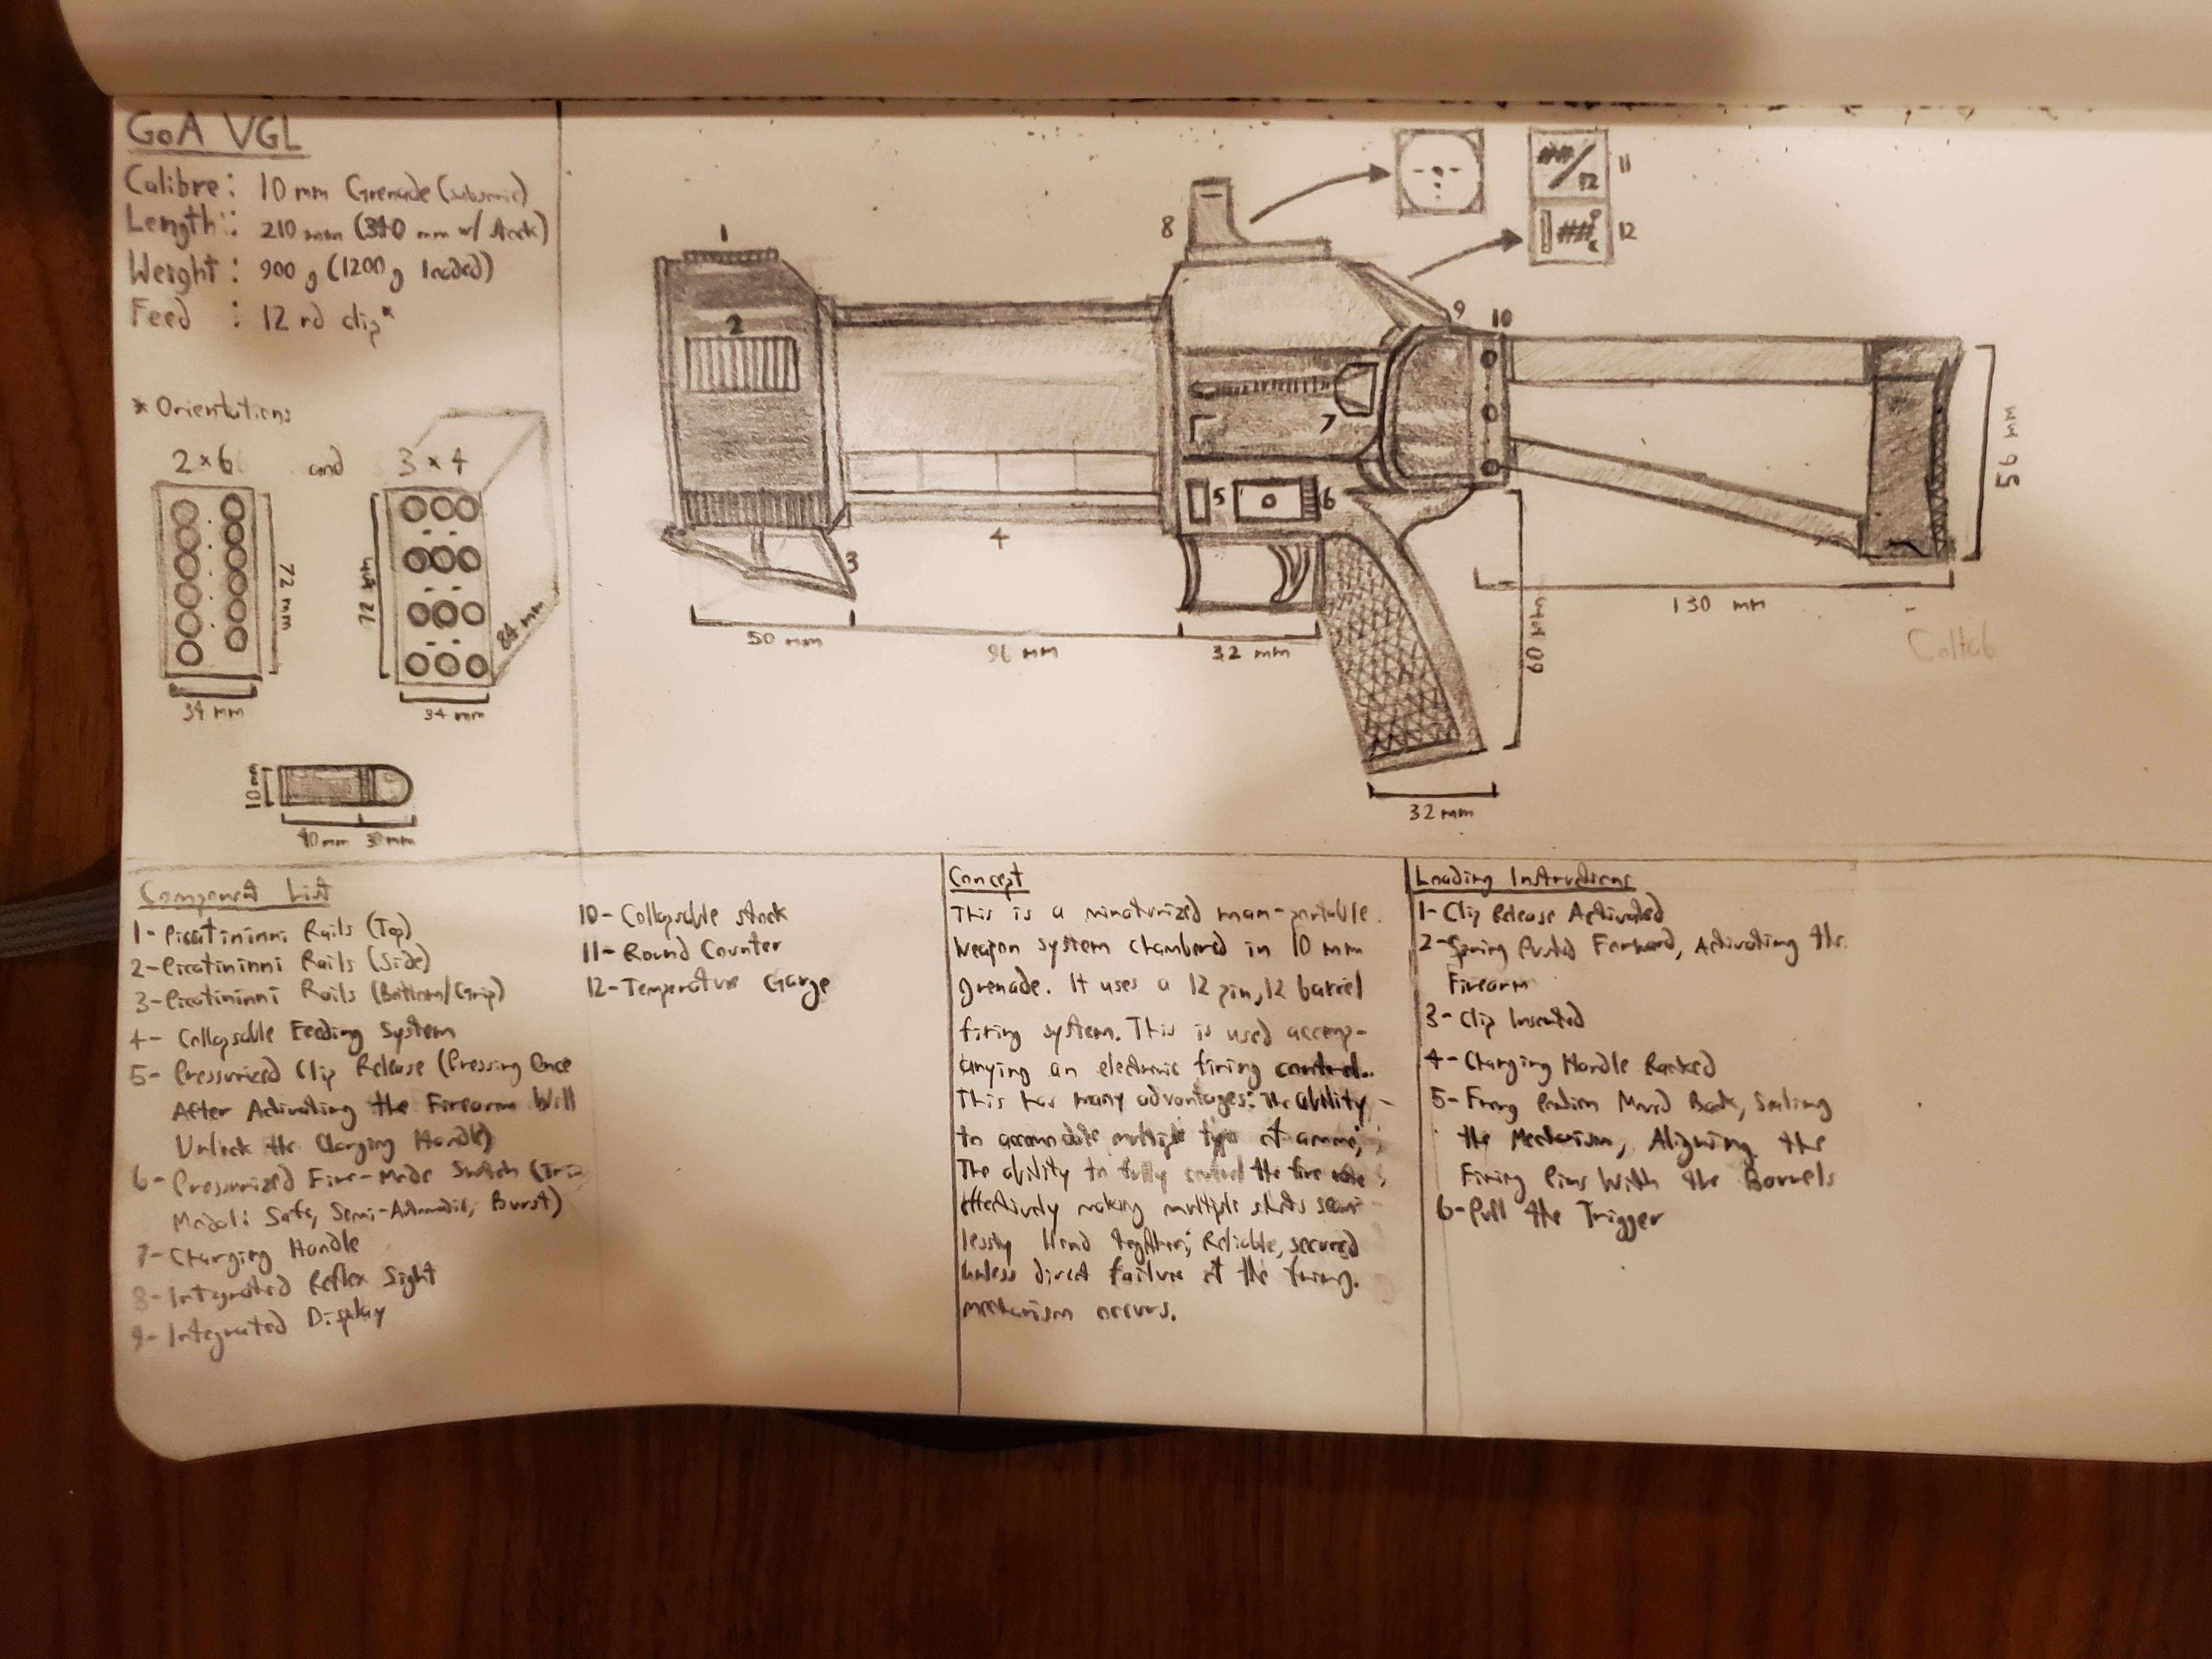 GoA VGL
Calibre: 10 mm Grenade (subsonic)
Length: 210 mm (340 mm w/ stock)
Weight: 900 g (1200 g loaded)
Feed : 12 rd clip*
* Orientations
2×6 and 3×4
72 mm
34 mm
72 mm
84 mm
34 mm
10 mm
40 mm 30 mm
1
2
3
4
5
6
7
8
9
10
##/12
11
##°c
12
50 mm
96 mm
32 mm
60 mm
32 mm
130 mm
56 mm
Collab
Component List
1- Picatininni Rails (Top)
2- Picatininni Rails (Side)
3- Picatininni Rails (Bottom/Grip)
4- Collapsable Feeding System
5- Pressurized Clip Release (Pressing Once
After Activating the Firearm Will
Unlock the Charging Handle)
6- Pressurized Fire-Mode Switch (Tri-
Modal: Safe, Semi-Automatic, Burst)
7- Charging Handle
8- Integrated Reflex Sight
9- Integrated Display
10- Collapsable stock
11- Round Counter
12- Temperature Gauge
Concept
This is a minaturized man-portable
weapon system chambered in 10 mm
grenade. It uses a 12 pin, 12 barrel
firing system. This is used accomp-
anying an electronic firing control.
This has many advantages: The ability
to accomodate multiple type of ammo;
The ability to fully control the fire rate;
effectively making multiple shots seam-
lessly blend together; Reliable, secured
unless direct failure of the firing
mechanism occurs.
Loading Instructions
1- Clip Release Activated
2- Spring Pushed Forward, Activating the
Firearm
3- Clip Inserted
4- Charging Handle Racked
5- Firing Moved Back, Sealing
the Mechanism, Aligning the
Firing Pins With the Barrels
6- Pull the Trigger